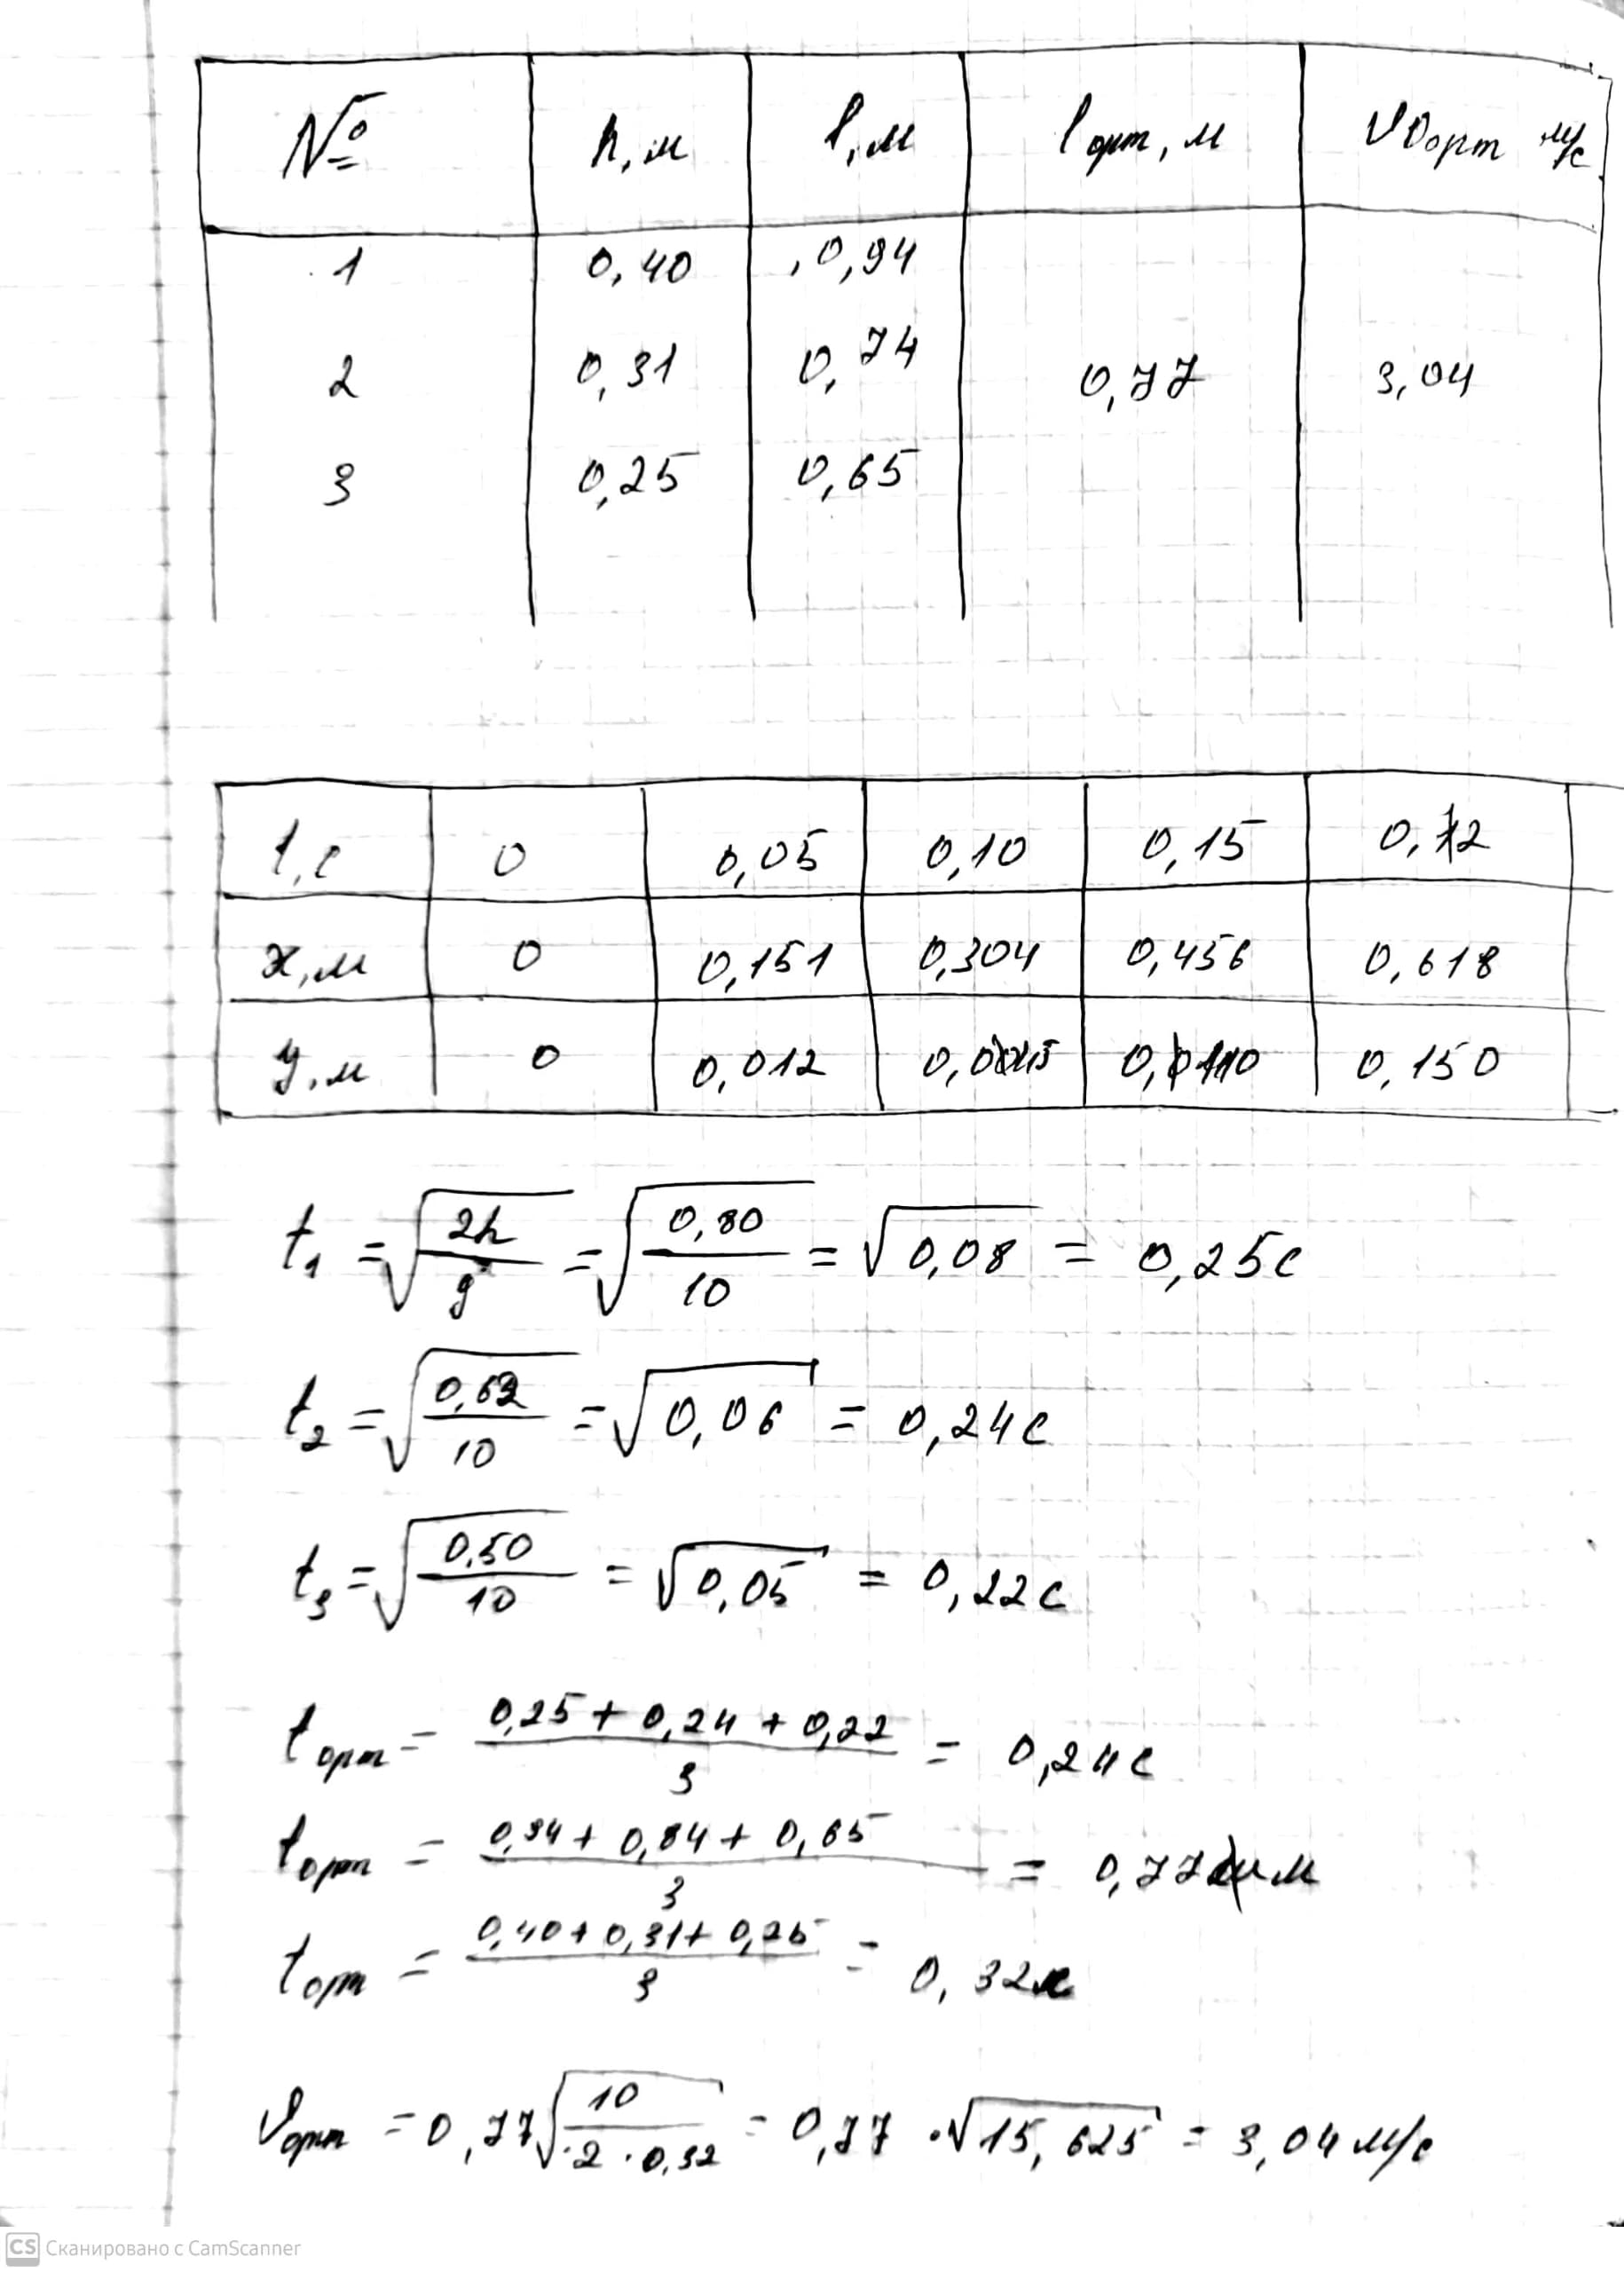 № h,м l,м lорт,м V0орт м/с
1 0,40 0,94
2 0,31 0,74 0,77 3,04
3 0,25 0,65
t,с 0 0,05 0,10 0,15 0,2
x,м 0 0,151 0,304 0,456 0,618
y,м 0 0,012 0,150
t₁ = √(2h/g) = √(0,80/10) = √0,08 = 0,25с
t₂ = √(0,62/10) = √0,06 = 0,24с
t₃ = √(0,50/10) = √0,05 = 0,22с
tорт = (0,25 + 0,24 + 0,22)/3 = 0,24с
lорт = (0,94 + 0,84 + 0,65)/3 = 0,77м
tорт = (0,40 + 0,31 + 0,25)/3 = 0,32
Vорт = 0,77√(10/(2·0,32)) = 0,77·√15,625 = 3,04 м/с
CS Сканировано с CamScanner